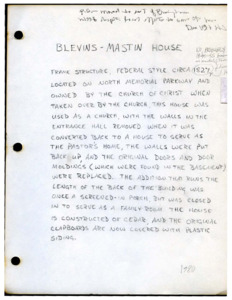 BLEVINS - MASTIN HOUSE
FRAME STRUCTURE, FEDERAL STYLE, CIRCA 1827,
LOCATED ON NORTH MEMORIAL PARKWAY AND
OWNED BY THE CHURCH OF CHRIST WHEN
TAKEN OVER BY THE CHURCH, THIS HOUSE
WAS USED AS A CHURCH, WITH THE WALLS IN THE
ENTRANCE HALL REMOVED WHEN IT WAS
CONVERTED BACK TO A HOUSE TO SERVE AS
THE PASTOR'S HOME, THE WALLS WERE PUT
BACK UP AND THE ORIGINAL DOORS AND DOOR
MOLDINGS (WHICH WERE FOUND IN THE BASEMENT)
WERE REPLACED. THE ADDITION THAT RUNS THE
LENGTH OF THE BACK OF THE BUILDING WAS
ONCE A SCREENED-IN PORCH BUT WAS CLOSED
IN TO SERVE AS A FAMILY ROOM. THE HOUSE
IS CONSTRUCTED OF CEDAR, AND THE ORIGINAL
CLAPBOARDS ARE NOW COVERED WITH PLASTIC
SIDING.
1980